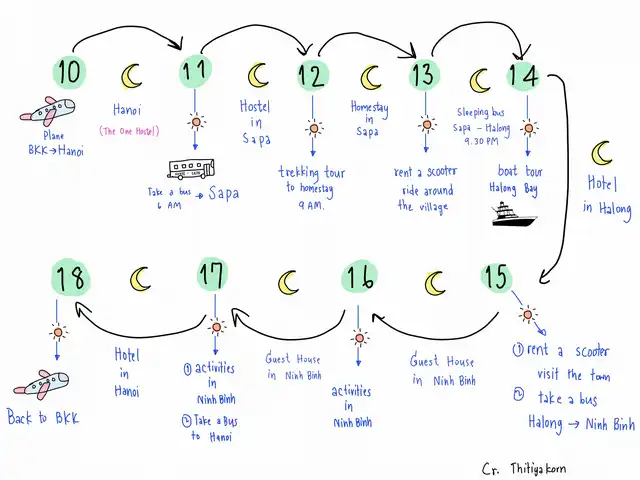 10
11
12
13
14
Plane
BKK→Hanoi
Hanoi
(The One Hostel)
Take a bus → Sapa
6 AM
Hostel
in
Sapa
trekking tour
to homestay
9 AM.
Homestay
in
Sapa
rent a scooter
ride around
the village
Sleeping bus
Sapa - Halong
9.30 PM
boat tour
Halong Bay
Hotel
in Halong
18
17
16
15
Back to BKK
Hotel
in
Hanoi
① activities
in
Ninh Binh
② Take a Bus
to Hanoi
Guest House
in Ninh Binh
activities
in
Ninh Binh
Guest House
in Ninh Binh
① rent a scooter
visit the town
② take a bus
Halong → Ninh Binh
Cr. Thitiyakorn